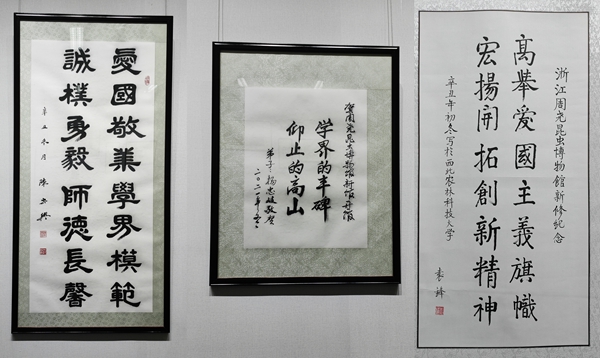 愛國敬業學界模範
誠樸勇毅師德長馨
辛丑冬月
贺周尧昆虫博物馆新馆开馆
学界的丰碑
仰止的高山
弟子杨忠岐敬贺
二〇二一年
浙江周尧昆虫博物館新修纪念
高舉爱國主義旗幟
宏揚開拓創新精神
辛丑年初冬写於西北农林科技大学
李鋒